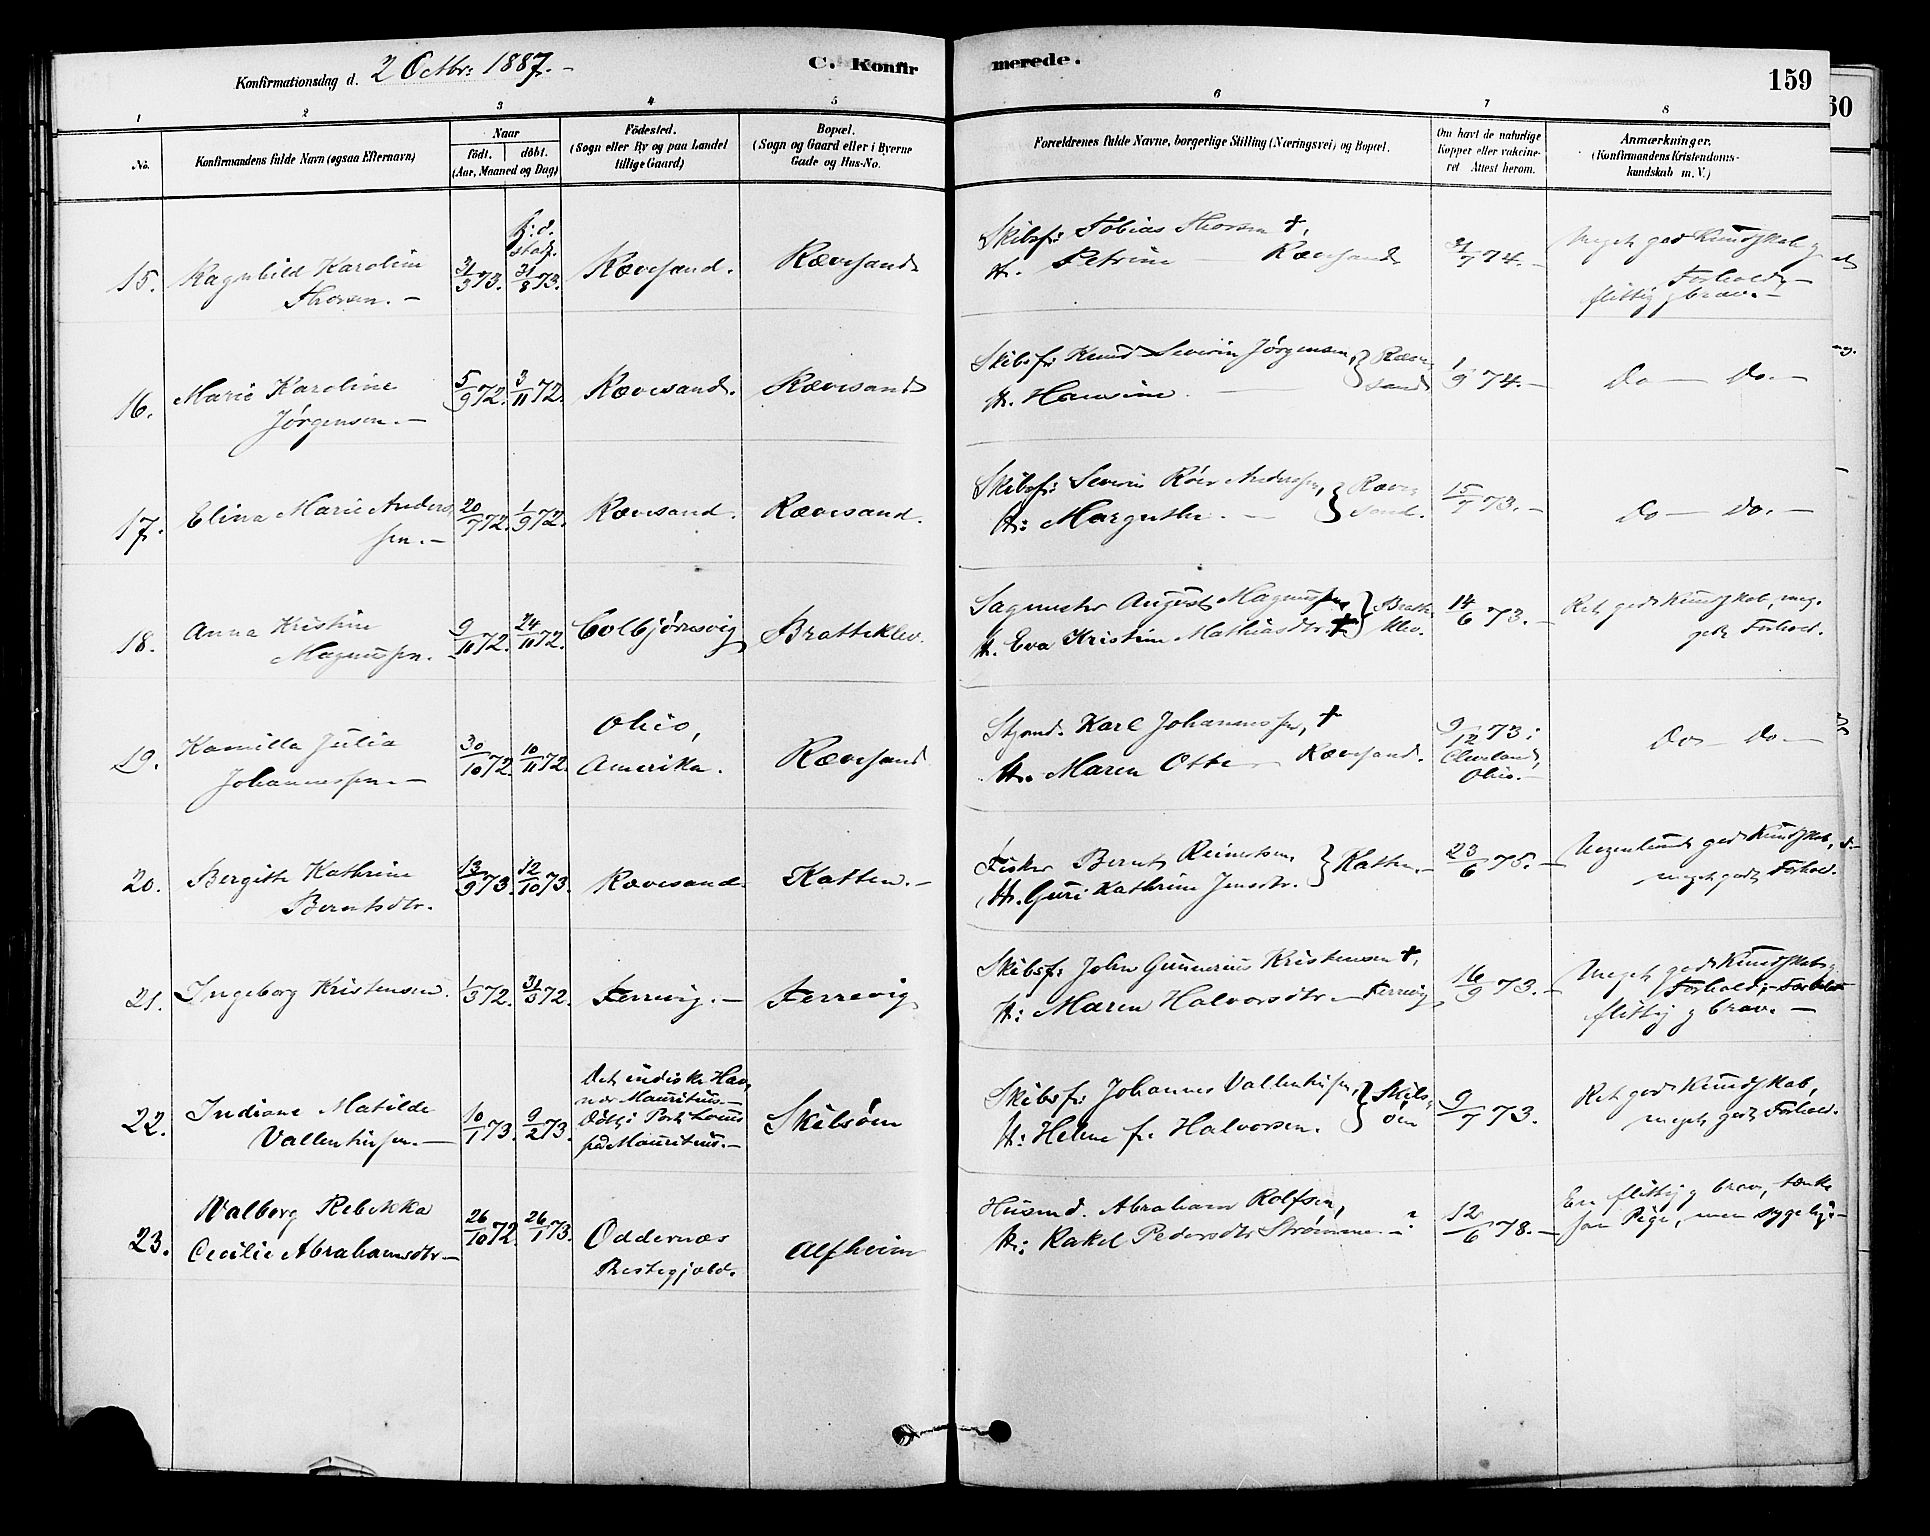 Konfirmationsdag d. 2 Octbr: 1887. –
C. Konfirmerede.
159
60
1 2 3 4 5 6 7 8
No.
Konfirmandens fulde Navn (ogsaa Efternavn)
Naar
födt. döbt.
(Aar, Maaned og Dag)
Födested.
(Sogn eller By og paa Landet
tillige Gaard)
Bopæl.
(Sogn og Gaard eller i Byerne
Gade og Hus-No.
Forældrenes fulde Navne, borgerlige Stilling (Næringsvei) og Bopæl.
Om havt de naturlige
Kopper eller vakcine-
ret Attest herom.
Anmærkninger.
(Konfirmandens Kristendoms-
kundskab m. V.)
15. Ragnhild Karoline
Thorsen. –
31/3 73.
h: d.
stadf.
31/8 73.
Rævesand.
Rævesand
Skibsf: Tobias Thorsen †,
H. Petrine — Rævesand
21/7 74. –
Meget god Kundskab og
Forhold, –
flittig g brav. –
16. Marie Karoline
Jørgensen. –
5/9 72. 3/11 72.
Rævesand.
Rævesand
Skibsf: Knud Severin Jørgensen, } Ræve
H. Hansine. — sand
1/9 74. –
Do — Do. –
17. Elina Marie Anders
sen. –
20/7 72. 1/9 72.
Rævesand.
Rævesand.
Skibsf: Severin Röer Anderssen, } Ræve
H: Margrethe. – sand.
15/7 73. –
Do — Do. –
18. Anna Kristine
Magnussen.
9/10 72. 24/11 72.
Colbjørnsvig
Bratteklev.
Sagmester August Magnussen } Bratte
H. Eva Kristine Mathiasdtr. † klev.
14/6 73. –
Ret god Kundskab, meg.
godt Forhold.
19. Kamilla Julia
Johannessen. –
30/10 72. 10/11 72.
Ohio,
Amerika.
Rævesand
Styrmd. Karl Johannessen, †
H. Maren Otte – Rævesand.
9/12 73 i
Cleveland,
Ohio. –
Do – Do –
20. Bergitte Kathrine
Berntsdtr.
13/9 73. 12/10 73.
Rævesand.
Katten. –
Fisker Bernt Reiertsen, } Katten. –
H. Guri Kathrine Jensdtr.
23/6 75. –
Nogenlunde god Kundskab,
meget godt Forhold.
21. Ingeborg Kristensen.
1/3 72. 31/3 72.
Færrevig. –
Færrevig
Skibsf: John Gunnerius Kristensen †,
H: Maren Halvorsdtr – Færrevig
16/9 73. –
Meget god Kundskab g
Forhold, – Forhold
flittig g brav. –
22. Indiane Matilde
Vallentinsen. –
10/1 73. 9/2 73.
Det indiske Hav,
nær Mauritius. –
Döbt i Port Louis
på Mauritius. –
Skilsöen
Skibsf: Johannes Vallentinsen, } Skils-
H: Helene f. Halvorsen. öen
9/7 73.
Ret god Kundskab,
meget godt Forhold.
23. Valborg Rebekka
Cecilie Abrahamsdtr –
26/10 72. 26/1 73.
Oddernæs
Prestegjæld.
Alfheim
Husmd. Abraham Rolfsen,
H: Rakel Pedersdtr Strömme. –
12/6 78. –
En flittig g brav, tænk
som Pige, men sygelig. –